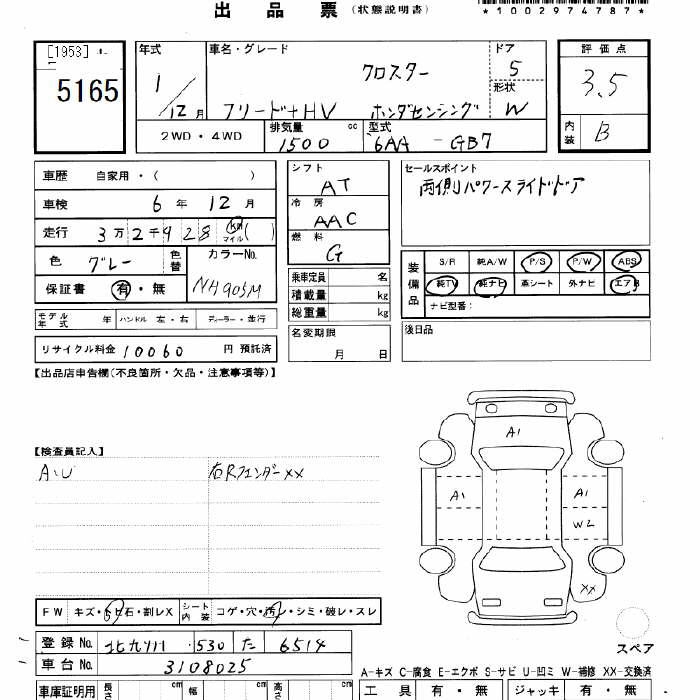 出品票（状態説明書）
*1002974787*
[1953]
5165
年式 1/12月
車名・グレード クロスター
フリード+HV ホンダセンシング
ドア 5
形状 W
評価点 3.5
内装 B
2WD・4WD
排気量 1500 cc
型式 6AA - GB7
車歴 自家用・( )
車検 6年 12月
走行 3万2千928 km マイル ( )
色 グレー 色替
カラーNo. NH905M
保証書 有・無
シフト AT
冷房 AAC
燃料 G
セールスポイント
両側パワースライドドア
乗車定員 名
積載量 kg
総重量 kg
装備品 S/R 純A/W P/S P/W ABS
純TV 純ナビ 革シート 外ナビ エアB
ナビ型番：
モデル年式 年 ハンドル 左・右 ディーラー・並行
名変期限 月 日
後日品
リサイクル料金 10060 円 預託済
【出品店申告欄(不良箇所・欠品・注意事項等)】
【検査員記入】
A・U 右Rフェンダーxx
A1
A1 A1
W2
XX
FW キズ・トビ石・割レX シート内装 コゲ・穴・汚レ・シミ・破レ・スレ
スペア
登録No. 北九州 530 た 6514
車台No. 3108025
A-キズ C-腐食 E-エクボ S-サビ U-凹ミ W-補修 XX-交換済
車庫証明用 長さ cm 幅 cm 高さ cm
工具 有・無 ジャッキ 有・無